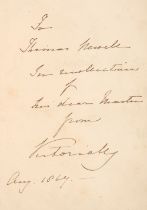 To
Thomas
In recollection
of
his dear Master
from
Victoria
Aug. 1867.